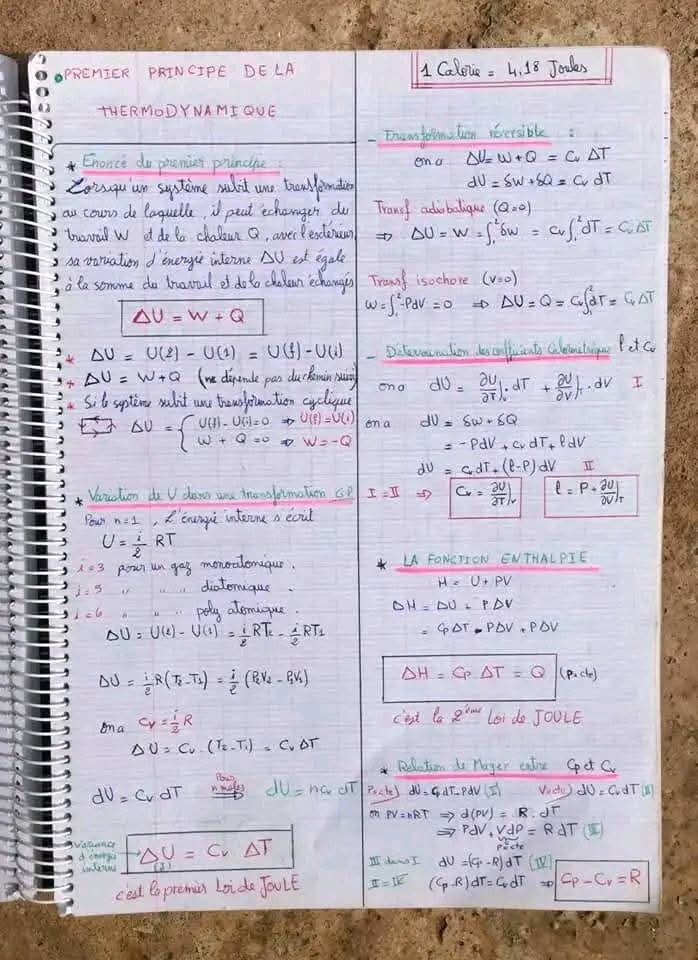 PREMIER PRINCIPE DE LA
THERMODYNAMIQUE
* Enoncé du premier principe :
Lorsqu'un système subit une transformation
au cours de laquelle, il peut échanger du
travail W et de la chaleur Q, avec l'extérieur,
sa variation d'énergie interne ΔU est égale
à la somme du travail et de la chaleur échangés
ΔU = W + Q
* ΔU = U(2) - U(1) = U(f) - U(i)
* ΔU = W + Q (ne dépende pas du chemin suivi)
* Si le système subit une transformation cyclique
ΔU = { U(f) - U(i) = 0 ⇒ U(f) = U(i)
W + Q = 0 ⇒ W = -Q
* Variation de U dans une transformation G.P
Pour n=1, L'énergie interne s'écrit
U = i/2 RT
i=3 pour un gaz monoatomique.
i=5 " " " diatomique.
i=6 " " " poly atomique.
ΔU = U(2) - U(1) = i/2 RT2 - i/2 RT1
ΔU = i/2 R(T2 - T1) = i/2 (P2V2 - P1V1)
on a Cv = i/2 R
ΔU = Cv . (T2 - T1) = Cv ΔT
dU = Cv dT Pour n moles ⇒ dU = n Cv dT
Variance d'énergie interne → ΔU = Cv ΔT
(1)
c'est la premier Loi de JOULE
1 Calorie = 4,18 Joules
- Transformation réversible :
on a ΔU = W + Q = Cv ΔT
dU = δW + δQ = Cv dT
Transf adiabatique (Q=0)
⇒ ΔU = W = ∫₁² δW = Cv ∫₁² dT = Cv ΔT
Transf isochore (V=0)
W = ∫₁² -PdV = 0 ⇒ ΔU = Q = Cv ∫₁² dT = Cv ΔT
- Détermination des coefficients Calorimétrique l et Cv
on a dU = ∂U/∂T)v . dT + ∂U/∂V)T . dV I
on a dU = δW + δQ
= -PdV + Cv dT + l dV
dU = Cv dT + (l-P) dV II
I = II ⇒ Cv = ∂U/∂T)v l = P + ∂U/∂V)T
* LA FONCTION ENTHALPIE
H = U + PV
ΔH = ΔU + PΔV
= Cp ΔT - PΔV + PΔV
ΔH = Cp ΔT = Q (P cte)
c'est la 2ème Loi de JOULE
* Relation de Mayer entre Cp et Cv
P(cte) dU = Cp dT - PdV (I) V(cte) dU = Cv dT (II)
on PV = nRT ⇒ d(PV) = R . dT
⇒ PdV + VdP = R dT (III)
P cte
III dans I dU = (Cp - R) dT (IV)
II = IV (Cp - R) dT = Cv dT ⇒ Cp - Cv = R